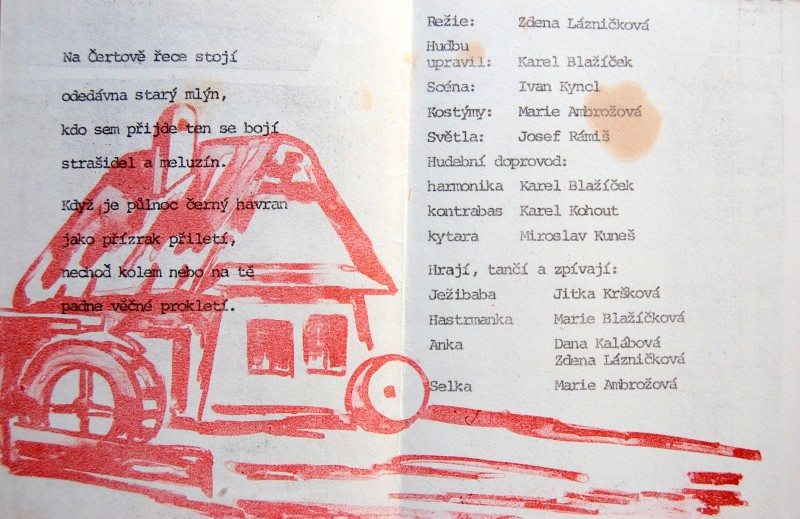 Na Čertově řece stojí
odedávna starý mlýn,
kdo sem přijde ten se bojí
strašidel a meluzín.
Když je půlnoc černý havran
jako přízrak přiletí,
nechoď kolem nebo na tě
padne věčné prokletí.
Režie: Zdena Lázničková
Hudbu
upravil: Karel Blažíček
Scéna: Ivan Kyncl
Kostýmy: Marie Ambrožová
Světla: Josef Rámiš
Hudební doprovod:
harmonika Karel Blažíček
kontrabas Karel Kohout
kytara Miroslav Kuneš
Hrají, tančí a zpívají:
Ježibaba Jitka Kršková
Hastrmanka Marie Blažíčková
Anka Dana Kalábová
Zdena Lázničková
Selka Marie Ambrožová